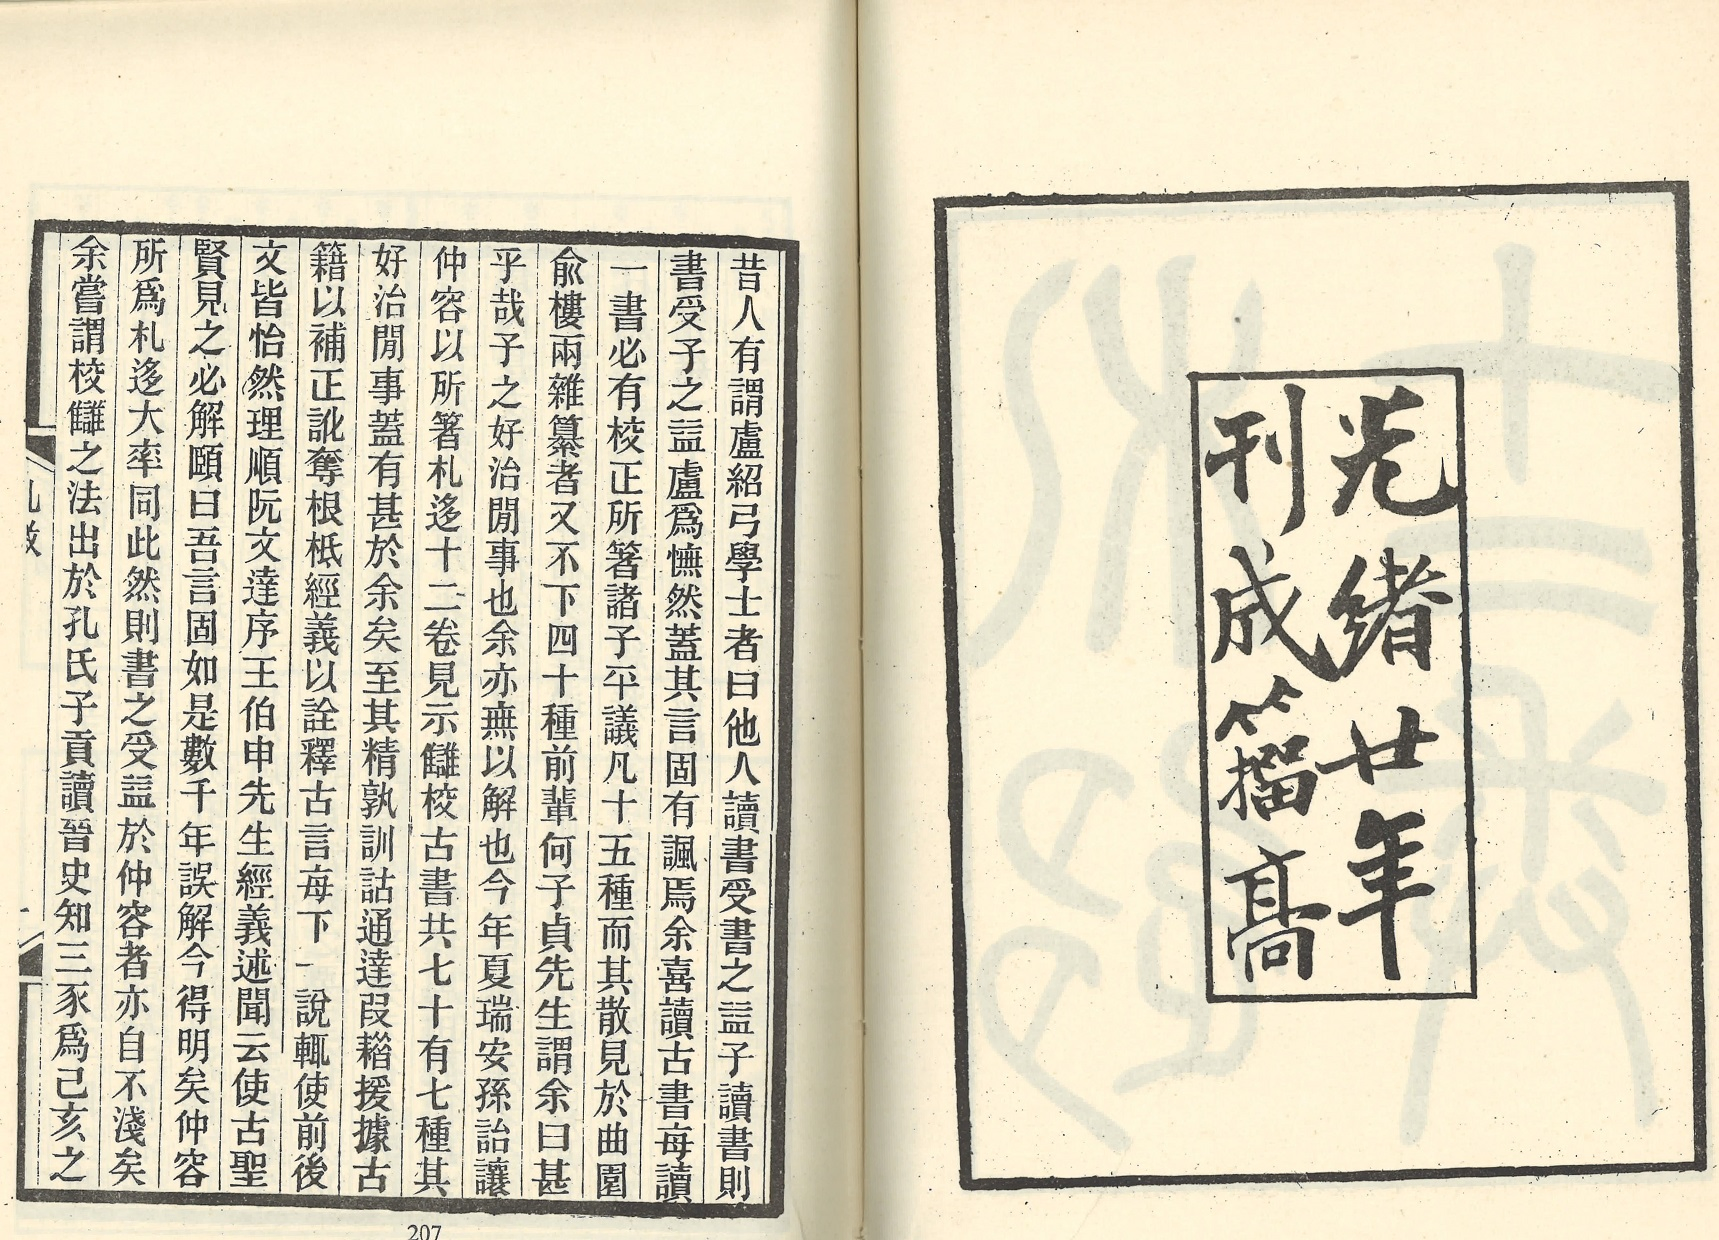 光緒廿年
刊成籀高
昔人有謂盧紹弓學士者曰他人讀書受書之益子讀書則
書受子之益盧爲憮然蓋其言固有諷焉余喜讀古書每讀
一書必有校正所箸諸子平議凡十五種而其散見於曲園
兪樓兩雜纂者又不下四十種前輩何子貞先生謂余曰甚
乎哉子之好治閒事也余亦無以解也今年夏瑞安孫詒讓
仲容以所箸札迻十二卷見示讎校古書共七十有七種其
好治閒事蓋有甚於余矣至其精孰訓詁通達叚藉援據古
籍以補正訛奪根柢經義以詮釋古言每下一說輒使前後
文皆怡然理順阮文達序王伯申先生經義述聞云使古聖
賢見之必解頤曰吾言固如是數千年誤解今得明矣仲容
所爲札迻大率同此然則書之受益於仲容者亦自不淺矣
余嘗謂校讎之法出於孔氏子貢讀晉史知三豕爲己亥之
207